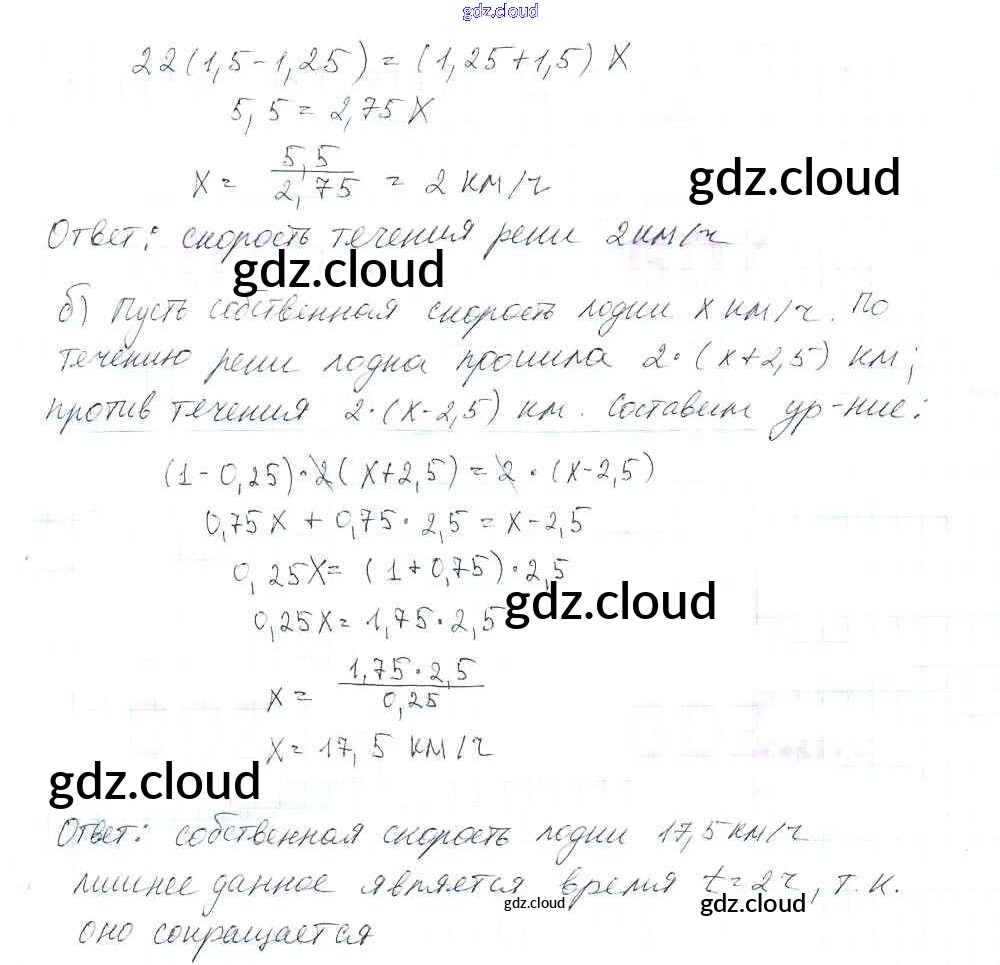 gdz.cloud
22(1,5-1,25) = (1,25+1,5) X
5,5 = 2,75 X
X = 5,5 / 2,75 = 2 км/ч
gdz.cloud
Ответ: скорость течения реки 2 км/ч
gdz.cloud
б) Пусть собственная скорость лодки x км/ч. По
течению реки лодка прошла 2·(x+2,5) км;
против течения 2·(x-2,5) км. Составим ур-ние:
(1-0,25)·2(x+2,5) = 2·(x-2,5)
0,75x + 0,75·2,5 = x-2,5
0,25x = (1+0,75)·2,5
0,25x = 1,75·2,5
gdz.cloud
x = 1,75·2,5 / 0,25
x = 17,5 км/ч
gdz.cloud
Ответ: собственная скорость лодки 17,5 км/ч
лишнее данное является время t=2ч, т.к.
gdz.cloud
gdz.cloud
оно сокращается